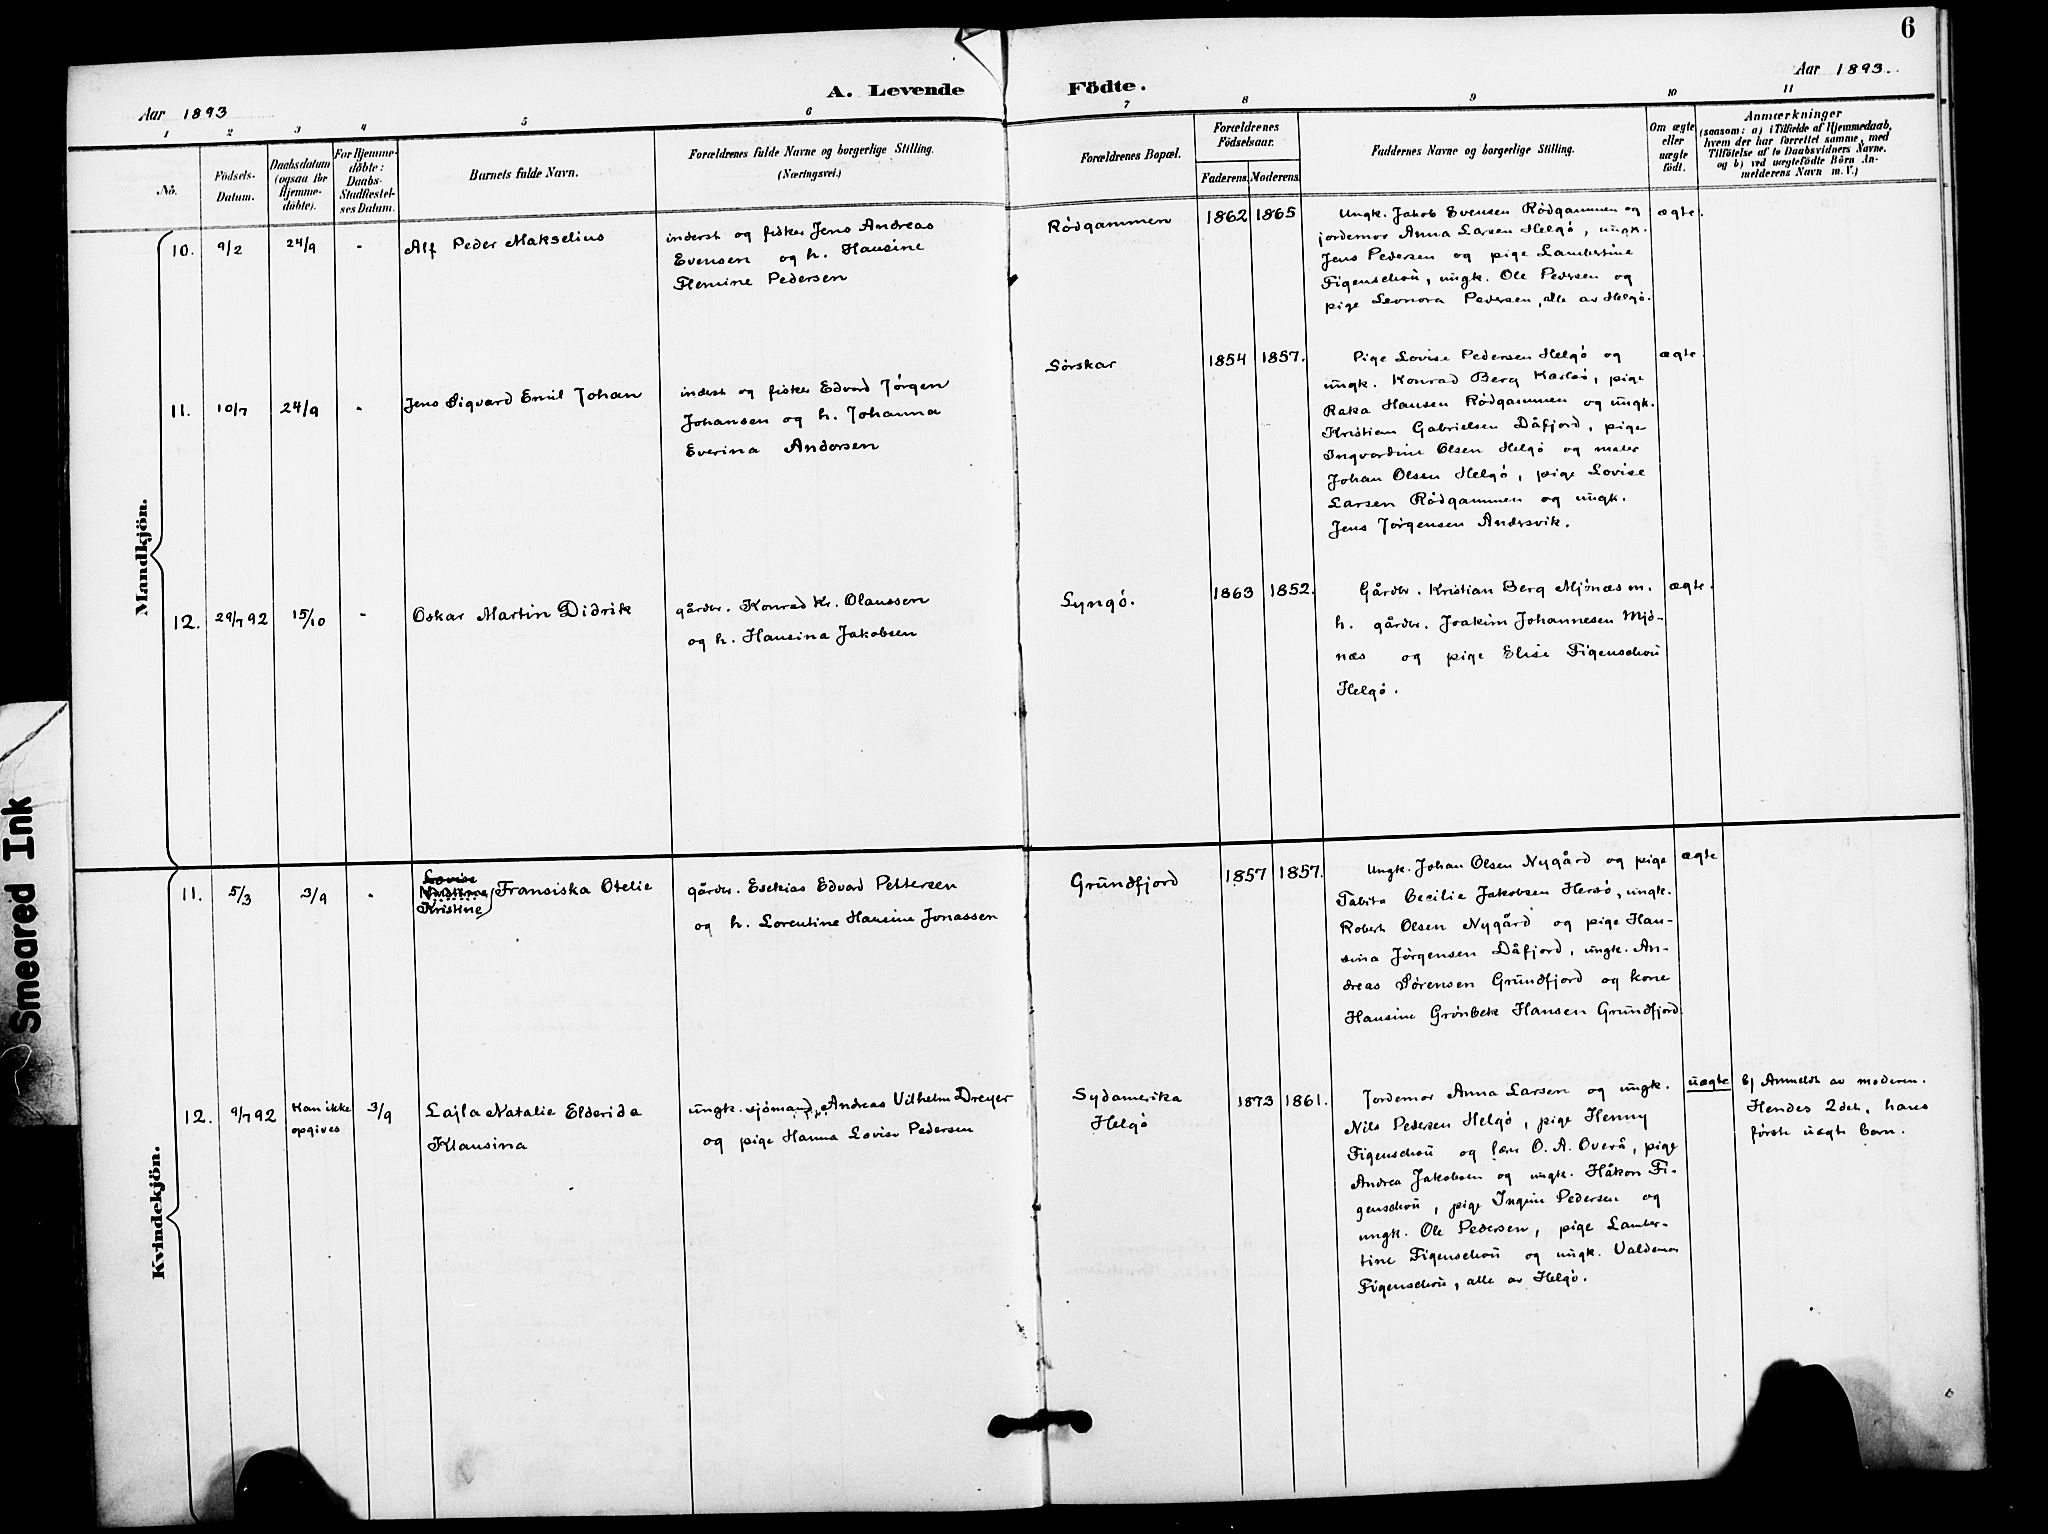 6
Aar 1893
A. Levende
Födte.
Aar 1893.
1 2 3 4 5 6 7 8 9 10 11
Nô.
Födsels-
Datum.
Daabsdatum
(ogsaa for
Hjemme-
döbte).
For Hjemme-
döbte:
Daabs-
Stadfæstel-
ses Datum.
Barnets fulde Navn.
Forældrenes fulde Navne og borgerlige Stilling.
(Næringsvei.)
Forældrenes Bopæl.
Forældrenes
Födselsaar.
Faderens. Moderens.
Faddernes Navne og borgerlige Stilling.
Om ægte
eller
uægte
födt.
Anmærkninger
(saasom: a) i Tilfælde af Hjemmedaab,
hvem der har forrettet samme, med
Tilföielse af to Daabsvidners Navne,
og b) ved uægtefödte Börn An-
melderens Navn m. V.)
Mandkjön.
10. 9/2 24/9 - Alf Peder Makselius
inderst og fisker Jens Andreas
Evensen og h. Hansine
Flemine Pedersen
Rödgammen 1862 1865
Ungk. Jakob Evensen Rödgammen og
jordemor Anna Larsen Helgö, ungk.
Jens Pedersen og pige Lambertine
Figenschou, ungk. Ole Pedersen og
pige Leonora Pedersen, alle av Helgö.
ægte.
11. 10/7 24/9 - Jens Sigvard Emil Johan
inderst og fisker Edvard Jörgen
Johansen og h. Johanna
Everina Andersen
Sörskar 1854 1857.
Pige Lovise Pedersen Helgö og
ungk. Konrad Berg Karlsö, pige
Raka Hansen Rödgammen og ungk.
Kristian Gabrielsen Dåfjord, pige
Ingvardine Olsen Helgö og maler
Johan Olsen Helgö, pige Lovise
Larsen Rödgammen og ungk.
Jens Jörgensen Andersvik.
ægte
12. 29/7 92 15/10 - Oskar Martin Didrik
gårdbr. Konrad Kr. Olaussen
og h. Hansina Jakobsen
Lyngö. 1863 1852.
Gårdbr. Kristian Berg Mjönæs m.
h. gårdbr. Joakim Johannesen Mjö-
næs og pige Elise Figenschou
Helgö.
ægte.
Kvindekjön.
11. 5/3 3/9 - Lovise
Kristine Fransiska Otelie
gårdbr. Esekias Edvard Pettersen
og h. Lorentine Hansine Jonassen
Grundfjord 1857 1857.
Ungk. Johan Olsen Nygård og pige
Tabita Cecilie Jakobsen Hersö, ungk.
Robert Olsen Nygård og pige Han-
sina Jörgensen Dåfjord, ungk. An-
dreas Sörensen Grundfjord og kone
Hansine Grönbek Hansen Grundfjord
ægte
12. 9/7 92 Kan ikke
opgives
3/9 Lajla Natalie Elderida
Klausina
ungk. sjömand, Andreas Vilhelm Dreyer
og pige Hanna Lovise Pedersen
Sydamerika
Helgö
1873 1861.
Jordemor Anna Larsen og ungk.
Nils Pedersen Helgö, pige Henny
Figenschou og lær O. A. Overå, pige
Andrea Jakobsen og ungk. Håkon Fi-
genschou, pige Ingine Pedersen og
ungk. Ole Pedersen, pige Lamber-
tine Figenschou og ungk. Valdemar
Figenschou, alle av Helgö.
uægte
b) Anmeldt av moderen.
Hendes 2det, hans
förste uægte barn.
Smeared Ink